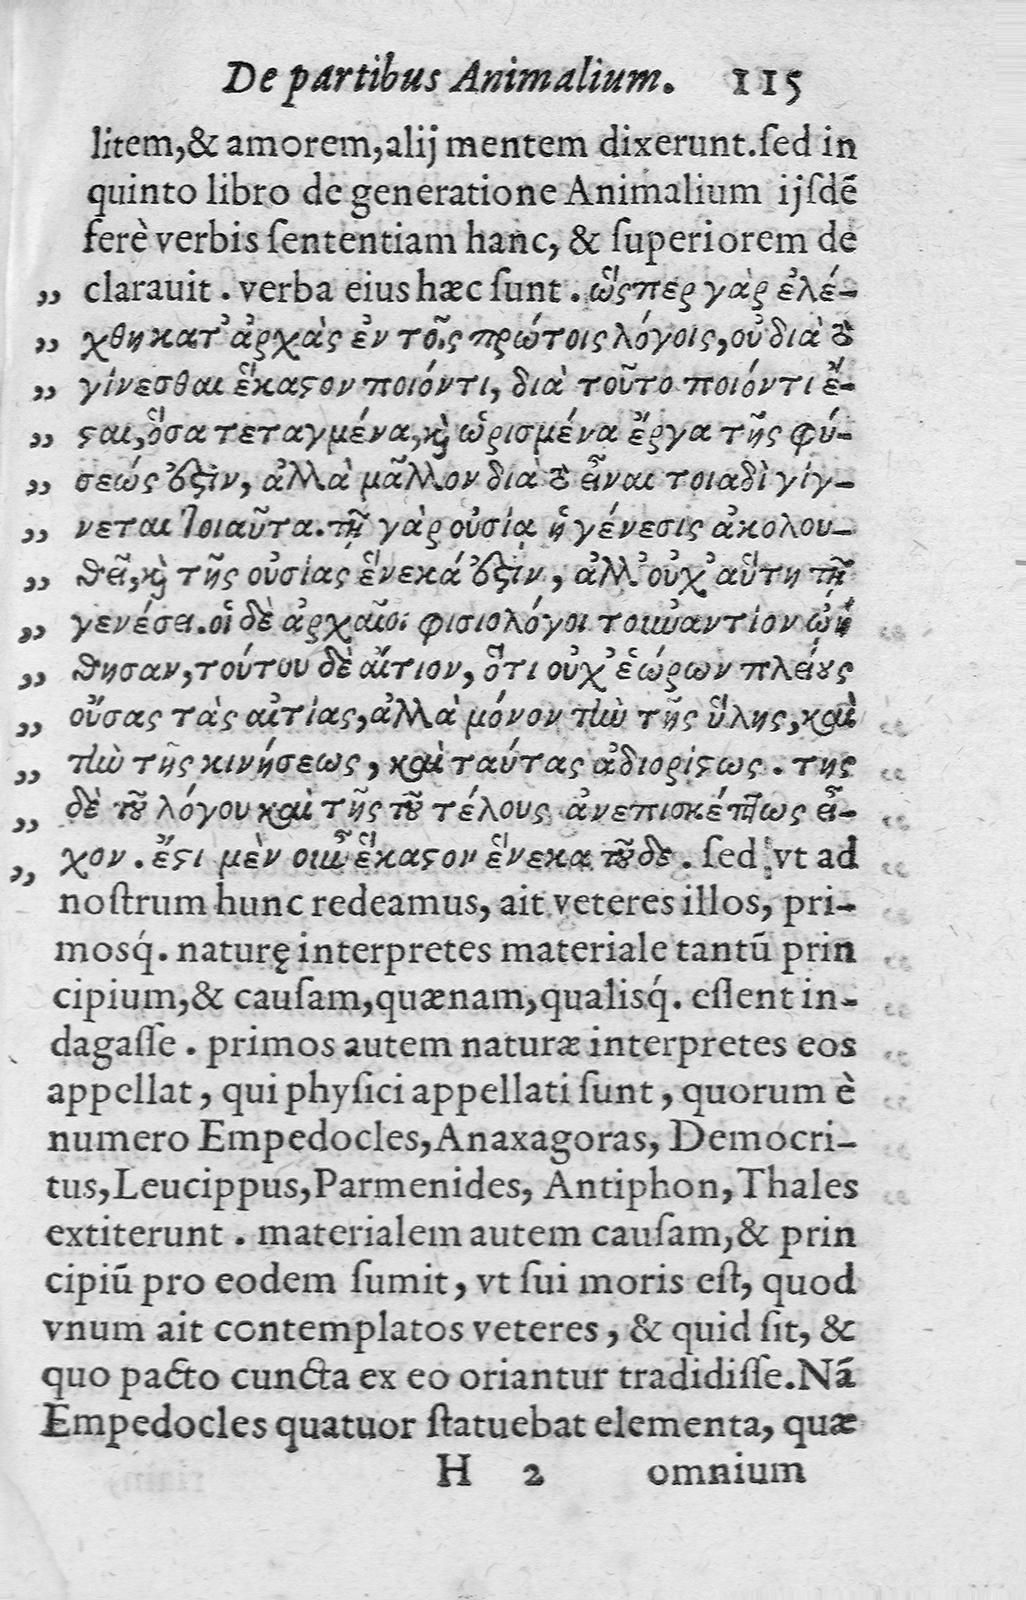 De partibus Animalium. 115
litem,& amorem,alij mentem dixerunt.ſed in
quinto libro de generatione Animalium ijſdē
ferè verbis ſententiam hanc, & ſuperiorem de
„ clarauit . verba eius hæc ſunt . ὥςπερ γὰρ ἐλέ-
„ χθη κατ᾽ ἀρχὰς ἐν τοῖς πρώτοις λόγοις, οὐ διὰ τὸ
„ γίνεσθαι ἕκαςον ποιόντι, διὰ τοῦτο ποιόντι ἔ-
„ ςαι, ὅσα τεταγμένα, κὶ ὡρισμένα ἔργα τῆς φύ-
„ σεώς ἐςὶν, ἀλλὰ μᾶλλον διὰ τὸ εἶναι τοιαδὶ γίγ-
„ νεται τοιαῦτα. τῇ γὰρ οὐσίᾳ ἡ γένεσις ἀκολου-
„ θεῖ, κὶ τῆς οὐσίας ἕνεκά ἐςιν, ἀλλ᾽ οὐχ᾽ αὕτη τῇ
„ γενέσει. οἱ δὲ ἀρχαῖοι φισιολόγοι τοὐναντίον ᾠή
„ θησαν, τούτου δὲ αἴτιον, ὅτι οὐχ᾽ ἑώρων πλείους
„ οὔσας τὰς αἰτίας, ἀλλὰ μόνον τὴν τῆς ὕλης, καὶ
„ τὴν τῆς κινήσεως, καὶ ταύτας ἀδιορίςως . τῆς
„ δὲ τοῦ λόγου καὶ τῆς τοῦ τέλους ἀνεπισκέπτως εἶ-
„ χον . ἔςι μὲν οὖν ἕκαςον ἕνεκα τοῦδε . ſed vt ad
noſtrum hunc redeamus, ait veteres illos, pri-
moſq́. naturę interpretes materiale tantū prin
cipium,& cauſam,quænam,qualiſq́. eſſent in-
dagaſſe . primos autem naturæ interpretes eos
appellat , qui phyſici appellati ſunt , quorum è
numero Empedocles,Anaxagoras, Democri-
tus,Leucippus,Parmenides, Antiphon,Thales
extiterunt . materialem autem cauſam,& prin
cipiū pro eodem ſumit , vt ſui moris eſt, quod
vnum ait contemplatos veteres , & quid ſit, &
quo pacto cuncta ex eo oriantur tradidiſſe.Nā
Empedocles quatuor ſtatuebat elementa, quæ
H 2 omnium